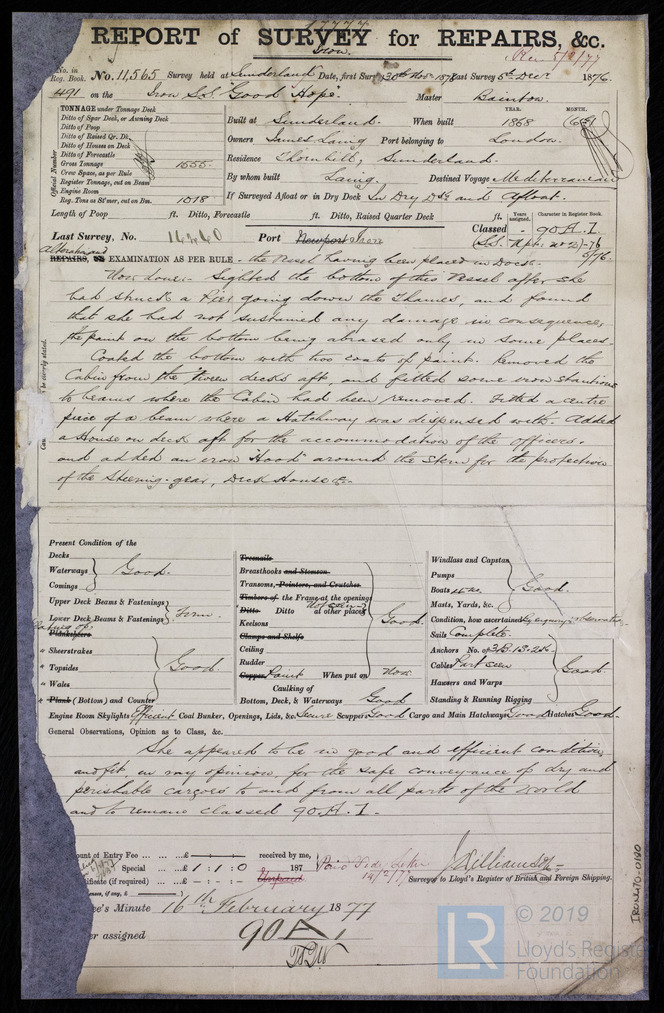 17774
REPORT of SURVEY for REPAIRS, &c.
Iron.
Rec 5/2/77
No. in Reg. Book
491
No. 11,565 Survey held at Sunderland Date, first Survey 30th Nov 1876 Last Survey 5th Decr 1876.
on the Iron S.S. "Good Hope". Master Bainton.
TONNAGE under Tonnage Deck
Ditto of Spar Deck, or Awning Deck
Ditto of Poop
Ditto of Raised Qr. Dk.
Ditto of Houses on Deck
Ditto of Forecastle
Gross Tonnage 1655
Crew Space, as per Rule
Register Tonnage, cut on Beam
Engine Room
Reg. Tons as St'mer, cut on Bm. 1018
Official Number
YEAR. MONTH.
Built at Sunderland. When built 1868 (6)
Owners James Laing Port belonging to London.
Residence Thornhill, Sunderland.
By whom built Laing. Destined Voyage Mediterranean
If Surveyed Afloat or in Dry Dock In Dry Dk and Afloat.
Length of Poop ft. Ditto, Forecastle ft. Ditto, Raised Quarter Deck ft.
Last Survey, No. 14440 Port Newport Iron
Years assigned. Character in Register Book.
Classed - 90.A.1.
(S.S. Npt. No 2)-76
5/76.
Alterations and
REPAIRS, OR EXAMINATION AS PER RULE. - the Vessel having been placed in Dock.
Now done:- Sighted the bottom of this Vessel after she
had struck a Pier going down the Thames, and found
that she had not sustained any damage in consequence,
the paint on the bottom being abrased only in some places.
Coated the bottom with two coats of paint. Removed the
Cabin from the 'tween decks aft, and fitted some iron stantions
to beams where the Cabin had been removed. Fitted a centre
piece of a beam where a Hatchway was dispensed with. Added
a House on deck aft for the accommodation of the officers.
and added an iron "Hood" around the Stern for the protection
of the Steering-gear, Deck House &c-
Present Condition of the
Decks
Waterways } Good.
Comings
Upper Deck Beams & Fastenings
Lower Deck Beams & Fastenings } Firm.
Plating of
Planksheers
" Sheerstrakes
" Topsides } Good
" Wales
" Plank (Bottom) and Counter
Treenails
Breasthooks and Stemson
Transoms, Pointers, and Crutches
Timbers of the Frame at the openings
Ditto Ditto at other places Not seen
Keelsons } Good.
Clamps and Shelfs
Ceiling
Rudder
Copper Paint When put on Now
Caulking of
Bottom, Deck, & Waterways Good
Windlass and Capstan
Pumps
Boats } Good.
Masts, Yards, &c.
Condition, how ascertained By enquiry & observation
Sails Complete.
Anchors No. of 3B. 1S. 2K.
Cables Part seen } Good.
Hawsers and Warps
Standing & Running Rigging
Engine Room Skylights Efficient Coal Bunker, Openings, Lids, &c. Secure Scuppers Good Cargo and Main Hatchways Good Hatches Good.
General Observations, Opinion as to Class, &c.
She appeared to be in good and efficient condition
and fit in my opinion for the safe conveyance of dry and
perishable cargoes to and from all parts of the World
and to remain classed 90.A.1.
unt of Entry Fee ... ... £ received by me,
Special ... £ 1 : 1 : 0 187
ificate (if required) ... £ - : - : -
Unpaid
Paid Vide letter
14/2/77
J Williamson
Surveyor to Lloyd's Register of British and Foreign Shipping.
ee's Minute 16th February 1877
er assigned 90 A 1
IRON470-0180
LR
© 2019
Lloyd's Register
Foundation